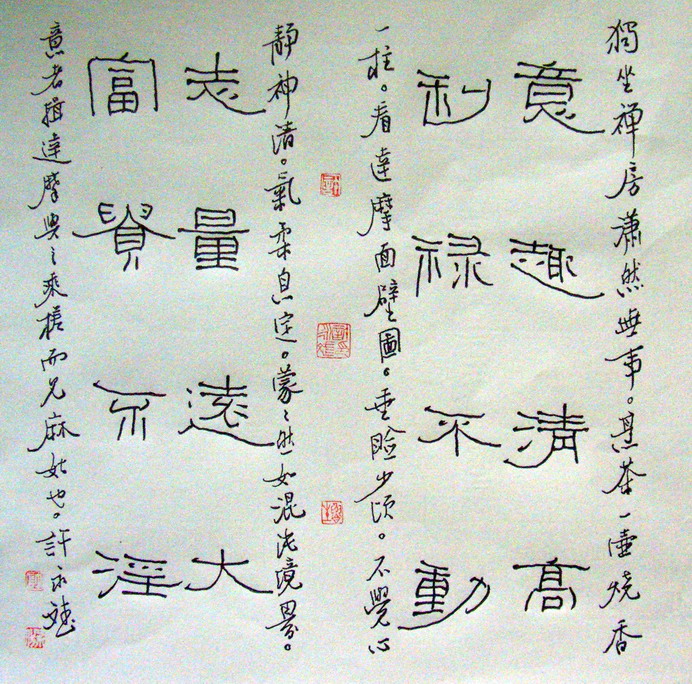 獨坐禅房瀟然無事。煑茶一壺烧香
意趣清高
利禄不動
一柱。看達摩面壁圖。垂睑少頃。不覺心
靜神清。氣柔息定。蒙々然如混沌境界。
志量遠大
富貴不淫
意者揖達摩與之乘槎而見麻姑也。許永